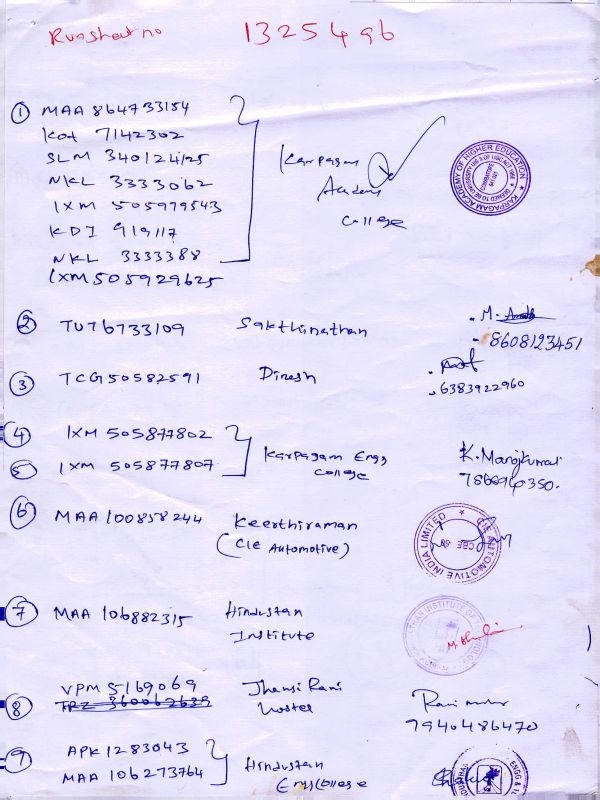 Runsheet no 1325496
① MAA 864733154
Kot 7142302
SLM 340124125
NKL 3333062
IXM 505979543
KDI 919117
NKL 3333388
IXM 505929625
Karpagam
Academy
college
KARPAGAM ACADEMY OF HIGHER EDUCATION
COIMBATORE
641 021
② TUT6733109 Sakthinathan M.
8608123451
③ TCG50582591 Dinesh
6383922960
④ IXM 505877802
⑤ IXM 505877807
Karpagam Engg
college
K. Manojkumar
⑥ MAA 100858244 Keerthiraman
(CIE Automotive)
CIE AUTOMOTIVE INDIA LIMITED
CBE
⑦ MAA 106882315 Hindustan
Institute
INSTITUTE OF
⑧ VPM 5169069 Jhansi Rani
Hostel
TPZ 360062639
7940486470
⑨ APK1283043
MAA 106273764
Hindustan
Engg College
ENGG